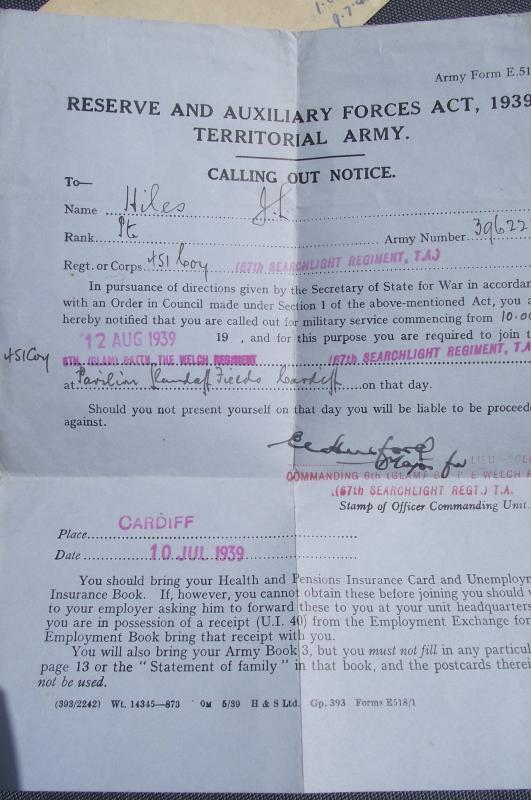 Army Form E.51
RESERVE AND AUXILIARY FORCES ACT, 1939
TERRITORIAL ARMY.
CALLING OUT NOTICE.
To—
Name Hiles J.L.
Rank Pte Army Number 39622
Regt. or Corps 451 Coy (67th SEARCHLIGHT REGIMENT, T.A.)
In pursuance of directions given by the Secretary of State for War in accordan
with an Order in Council made under Section 1 of the above-mentioned Act, you a
hereby notified that you are called out for military service commencing from 10.00
12 AUG 1939 19 , and for this purpose you are required to join t
451 Coy 6TH. (GLAM) BATTN. THE WELCH REGIMENT (67th SEARCHLIGHT REGIMENT, T.A
at Pavilion Llandaff Fields Cardiff on that day.
Should you not present yourself on that day you will be liable to be proceede
against.
Major for LIEU
COMMANDING 6th (GLAM) E WELCH R
(67th SEARCHLIGHT REGT.) T.A.
Stamp of Officer Commanding Unit.
Place CARDIFF
Date 10 JUL 1939
You should bring your Health and Pensions Insurance Card and Unemploym
Insurance Book. If, however, you cannot obtain these before joining you should w
to your employer asking him to forward these to you at your unit headquarters
you are in possession of a receipt (U.I. 40) from the Employment Exchange for
Employment Book bring that receipt with you.
You will also bring your Army Book 3, but you must not fill in any particul
page 13 or the "Statement of family" in that book, and the postcards therei
not be used.
(393/2242) Wt. 14345—873 0M 5/39 H & S Ltd. Gp. 393 Forms E518/1